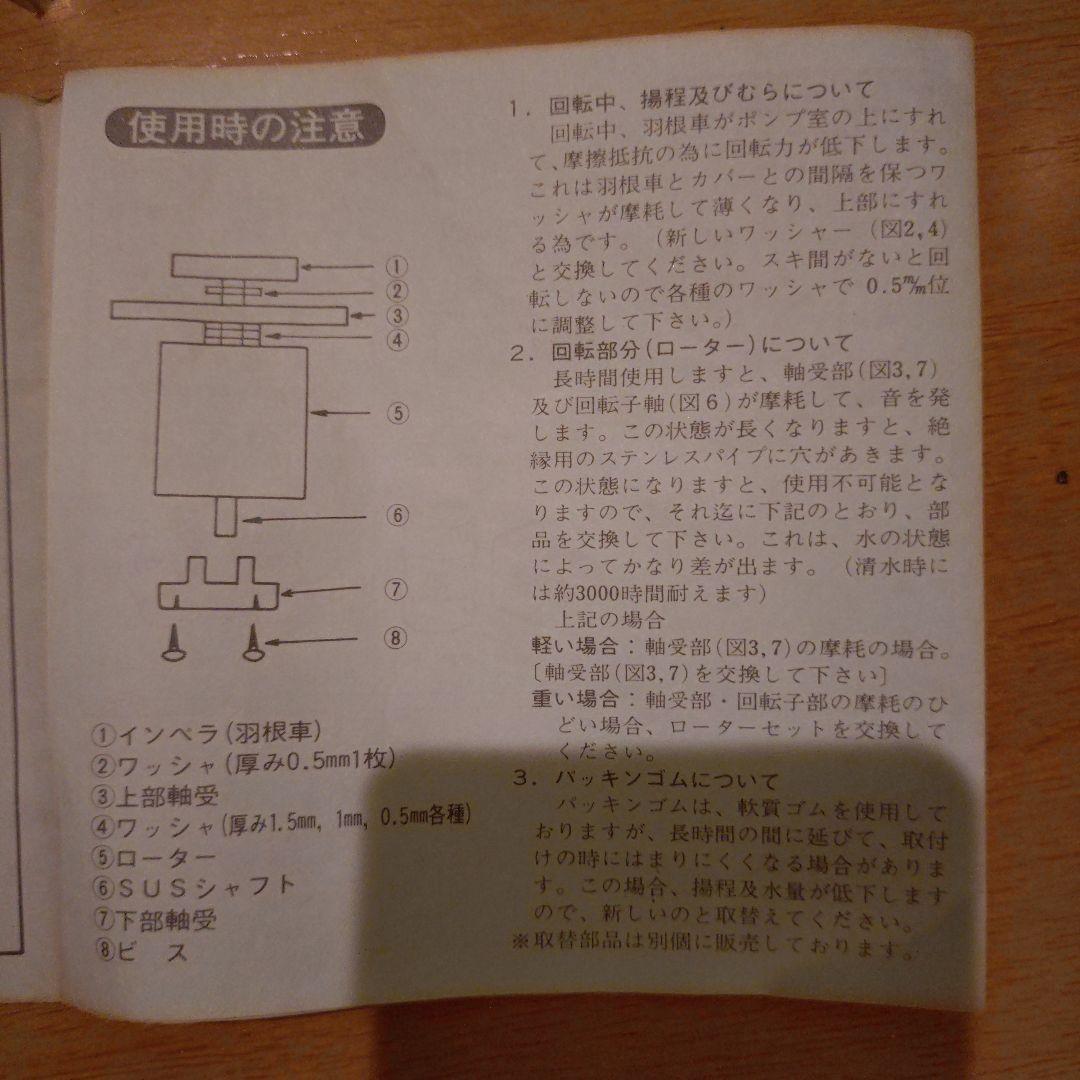 使用時の注意
①
②
③
④
⑤
⑥
⑦
⑧
①インペラ(羽根車)
②ワッシャ(厚み0.5mm1枚)
③上部軸受
④ワッシャ(厚み1.5mm, 1mm, 0.5mm各種)
⑤ローター
⑥SUSシャフト
⑦下部軸受
⑧ビ ス
1. 回転中、揚程及びむらについて
回転中、羽根車がポンプ室の上にすれ
て、摩擦抵抗の為に回転力が低下します。
これは羽根車とカバーとの間隔を保つワ
ッシャが摩耗して薄くなり、上部にすれ
る為です。(新しいワッシャー(図2,4)
と交換してください。スキ間がないと回
転しないので各種のワッシャで 0.5m/m位
に調整して下さい。)
2. 回転部分(ローター)について
長時間使用しますと、軸受部(図3,7)
及び回転子軸(図6)が摩耗して、音を発
します。この状態が長くなりますと、絶
縁用のステンレスパイプに穴があきます。
この状態になりますと、使用不可能とな
りますので、それ迄に下記のとおり、部
品を交換して下さい。これは、水の状態
によってかなり差が出ます。(清水時に
は約3000時間耐えます)
上記の場合
軽い場合:軸受部(図3,7)の摩耗の場合。
〔軸受部(図3,7)を交換して下さい〕
重い場合:軸受部・回転子部の摩耗のひ
どい場合、ローターセットを交換して
ください。
3. パッキンゴムについて
パッキンゴムは、軟質ゴムを使用して
おりますが、長時間の間に延びて、取付
けの時にはまりにくくなる場合がありま
す。この場合、揚程及水量が低下します
ので、新しいのと取替えてください。
※取替部品は別個に販売しております。